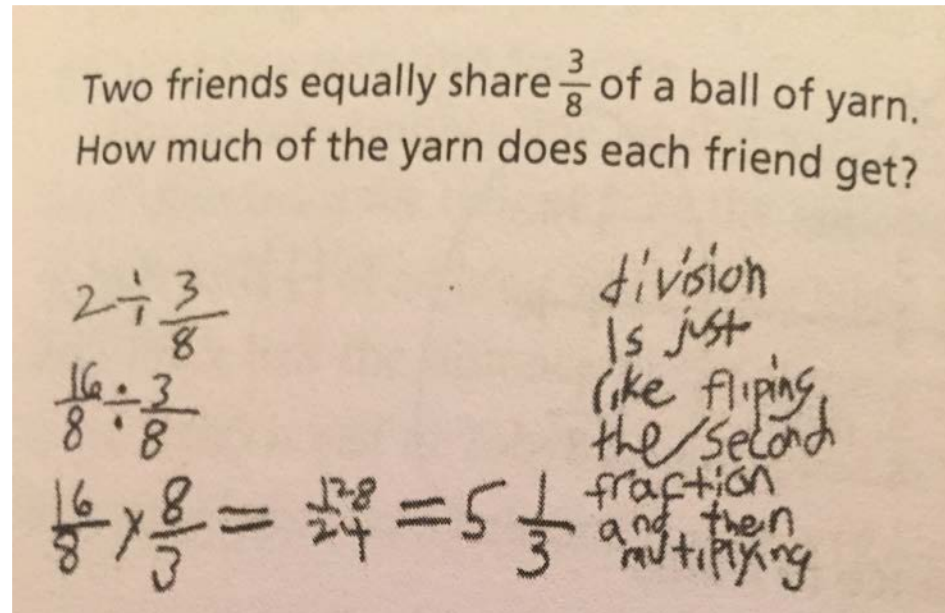 Two friends equally share 3/8 of a ball of yarn.
How much of the yarn does each friend get?
2 ÷ 3/8
16/8 ÷ 3/8
16/8 x 8/3 = 128/24 = 5 1/3
division
is just
like fliping
the second
fraction
and then
mutiplying